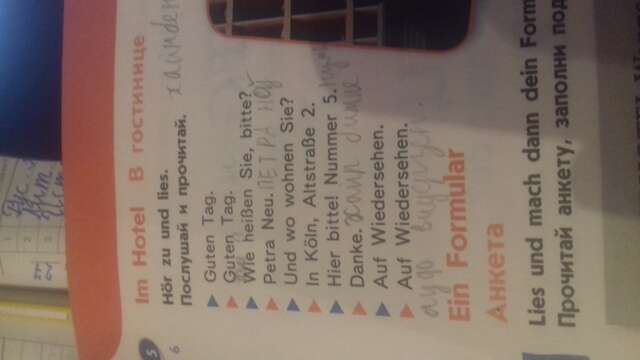 5
6
Im Hotel В гостинице
Hör zu und lies.
Послушай и прочитай.
Guten Tag.
Guten Tag.
Wie heißen Sie, bitte?
Petra Neu. ПЕТРА НОЙ
Und wo wohnen Sie?
In Köln, Altstraße 2.
Hier bitte! Nummer 5.
Danke.
Auf Wiedersehen.
Auf Wiedersehen.
Ein Formular
Анкета
Lies und mach dann dein Form
Прочитай анкету, заполни под